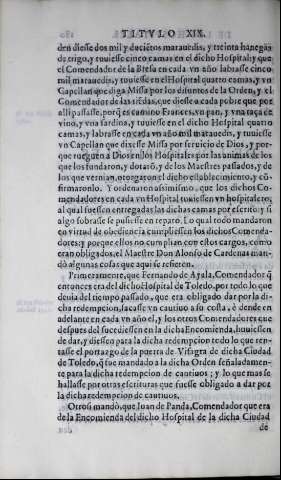 TITVLO XIX.
den diesse dos mil y duciētos marauedis, y treinta hanegas
de trigo, y touiesse cinco camas en el dicho Hospital: y que
el Comendador de la Bresa en cada vn año labrasse cinco
mil marauedis, y touiesse en el Hospital quatro camas, y vn
Capellan que diga Missa por los difuntos de la Orden, y el
Comendador de las tiēdas, que diesse a cada pobre que por
alli passasse, porq̃ es camino Frances, vn pan, y vna taça de
vino, y vna sardina, y touiesse en el dicho Hospital quatro
camas, y labrasse en cada vn año mil marauedis, y touiesse
vn Capellan que dixesse Missa por seruicio de Dios, y porque
rueguen a Dios en los Hospitales por las animas de los
que los fundaron, y dotarō, y de los Maestres passados, y de
los que vernian, otorgaron el dicho establecimiento, y cō-
firmaronlo. Y ordenaron assimismo, que los dichos Co-
mendadores en cada vn Hospital touiessen vn hospitalero,
al qual fuessen entregadas las dichas camas por escrito, y si
algo sobrasse se pusiesse en reparo. Lo qual todo mandaron
en virtud de obediencia cumpliessen los dichos Comenda-
dores: y porque ellos no cumplian con estos cargos, como
eran obligados, el Maestre Don Alonso de Cardenas man-
dò algunas cosas que aqui se refieren.
Primeramente, que Fernando de Ayala, Comendador q̃
entonces era del dicho Hospital de Toledo, por todo lo que
deuia del tiempo passado, que era obligado dar por la di-
cha redempcion, sacasse vn cautiuo a su costa, è dende en
adelante en cada vn año el, y los otros Comendadores que
despues del sucediessen en la dicha Encomienda, houiessen
de dar, y diessen para la dicha redempcion todo lo que ren-
tasse el portazgo de la puerta de Visagra de dicha Ciudad
de Toledo, q̃ fue mandado a la dicha Orden señaladamen-
te para la dicha redempcion de cautiuos; y lo que mas se
hallasse por otras escrituras que fuesse obligado a dar por
la dicha redempcion de cautiuos.
Otrosi mandò, que Iuan de Panda, Comendador que era
de la Encomienda del dicho Hospital de la dicha Ciudad
de